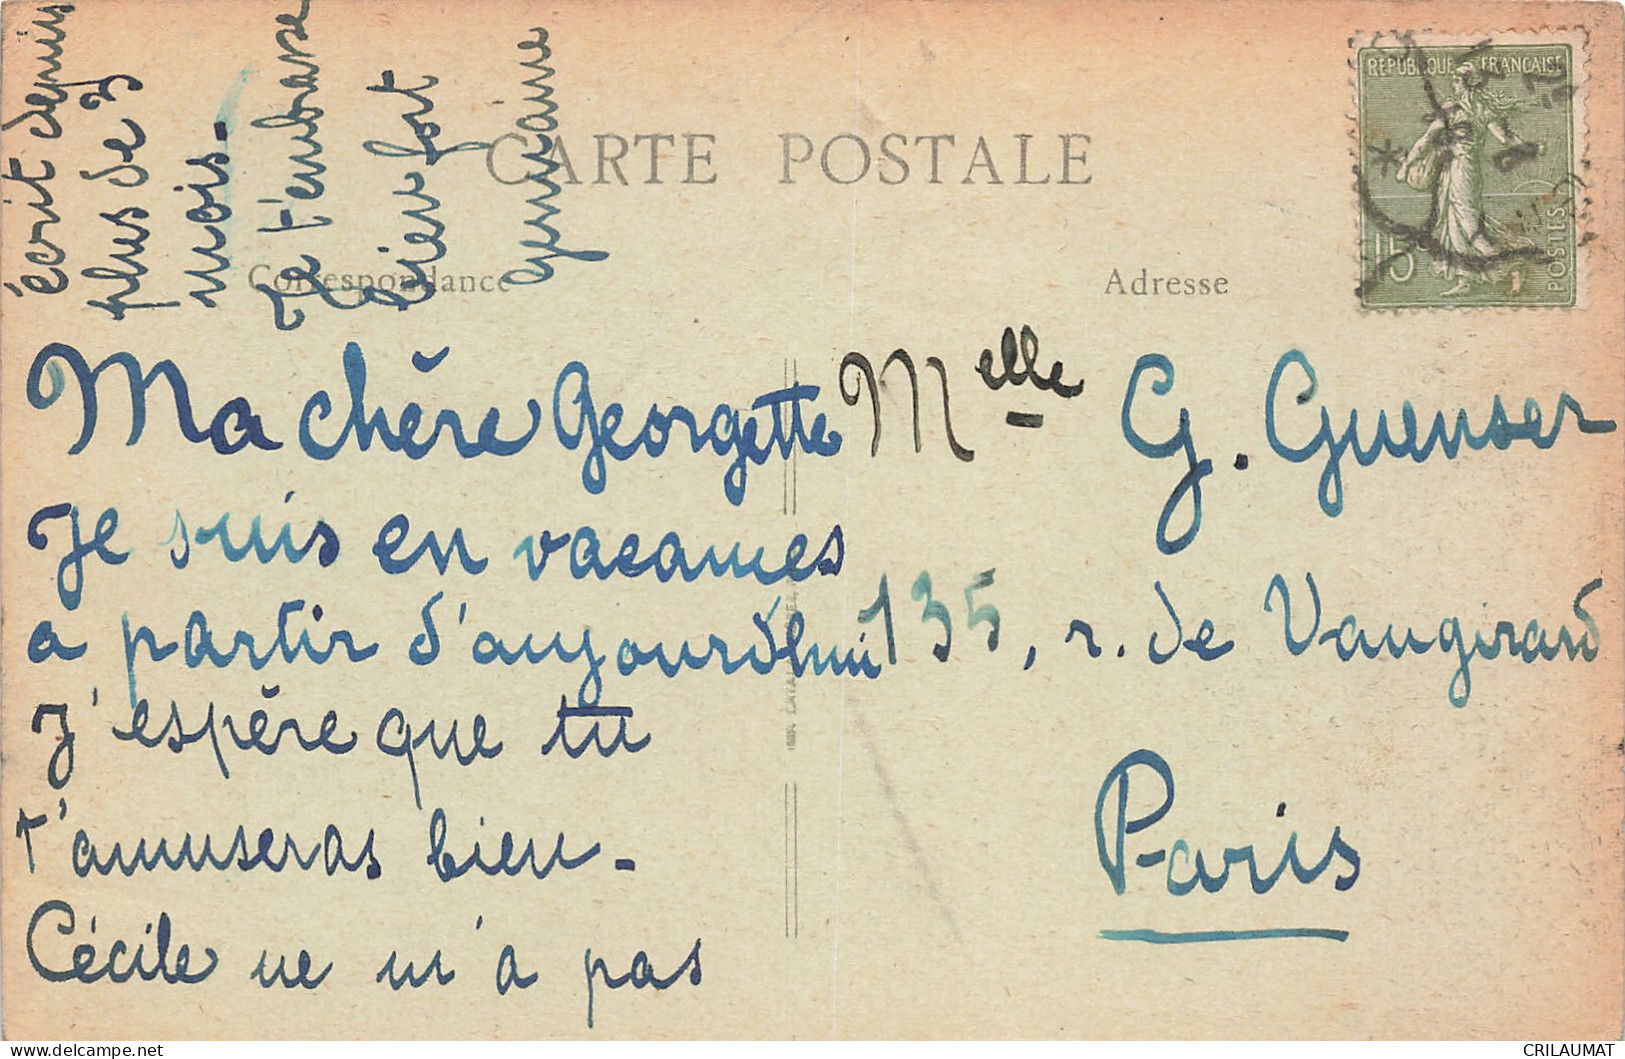 CARTE POSTALE
Correspondance
Adresse
REPUBLIQUE FRANÇAISE
15
POSTES
Ma chère Georgette
Je suis en vacances
a partir d'aujourd'hui
J'espère que tu
t'amuseras bien -
Cécile ne m'a pas
écrit depuis
plus de 3
mois -
Je t'embrasse
bien fort
Germaine
Melle G. Guenser
135, r. de Vaugirard
Paris
CRILAUMAT